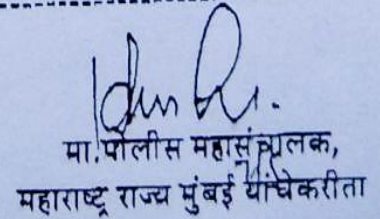 मा.पोलीस महासंचालक,
महाराष्ट्र राज्य मुंबई यांचेकरीता